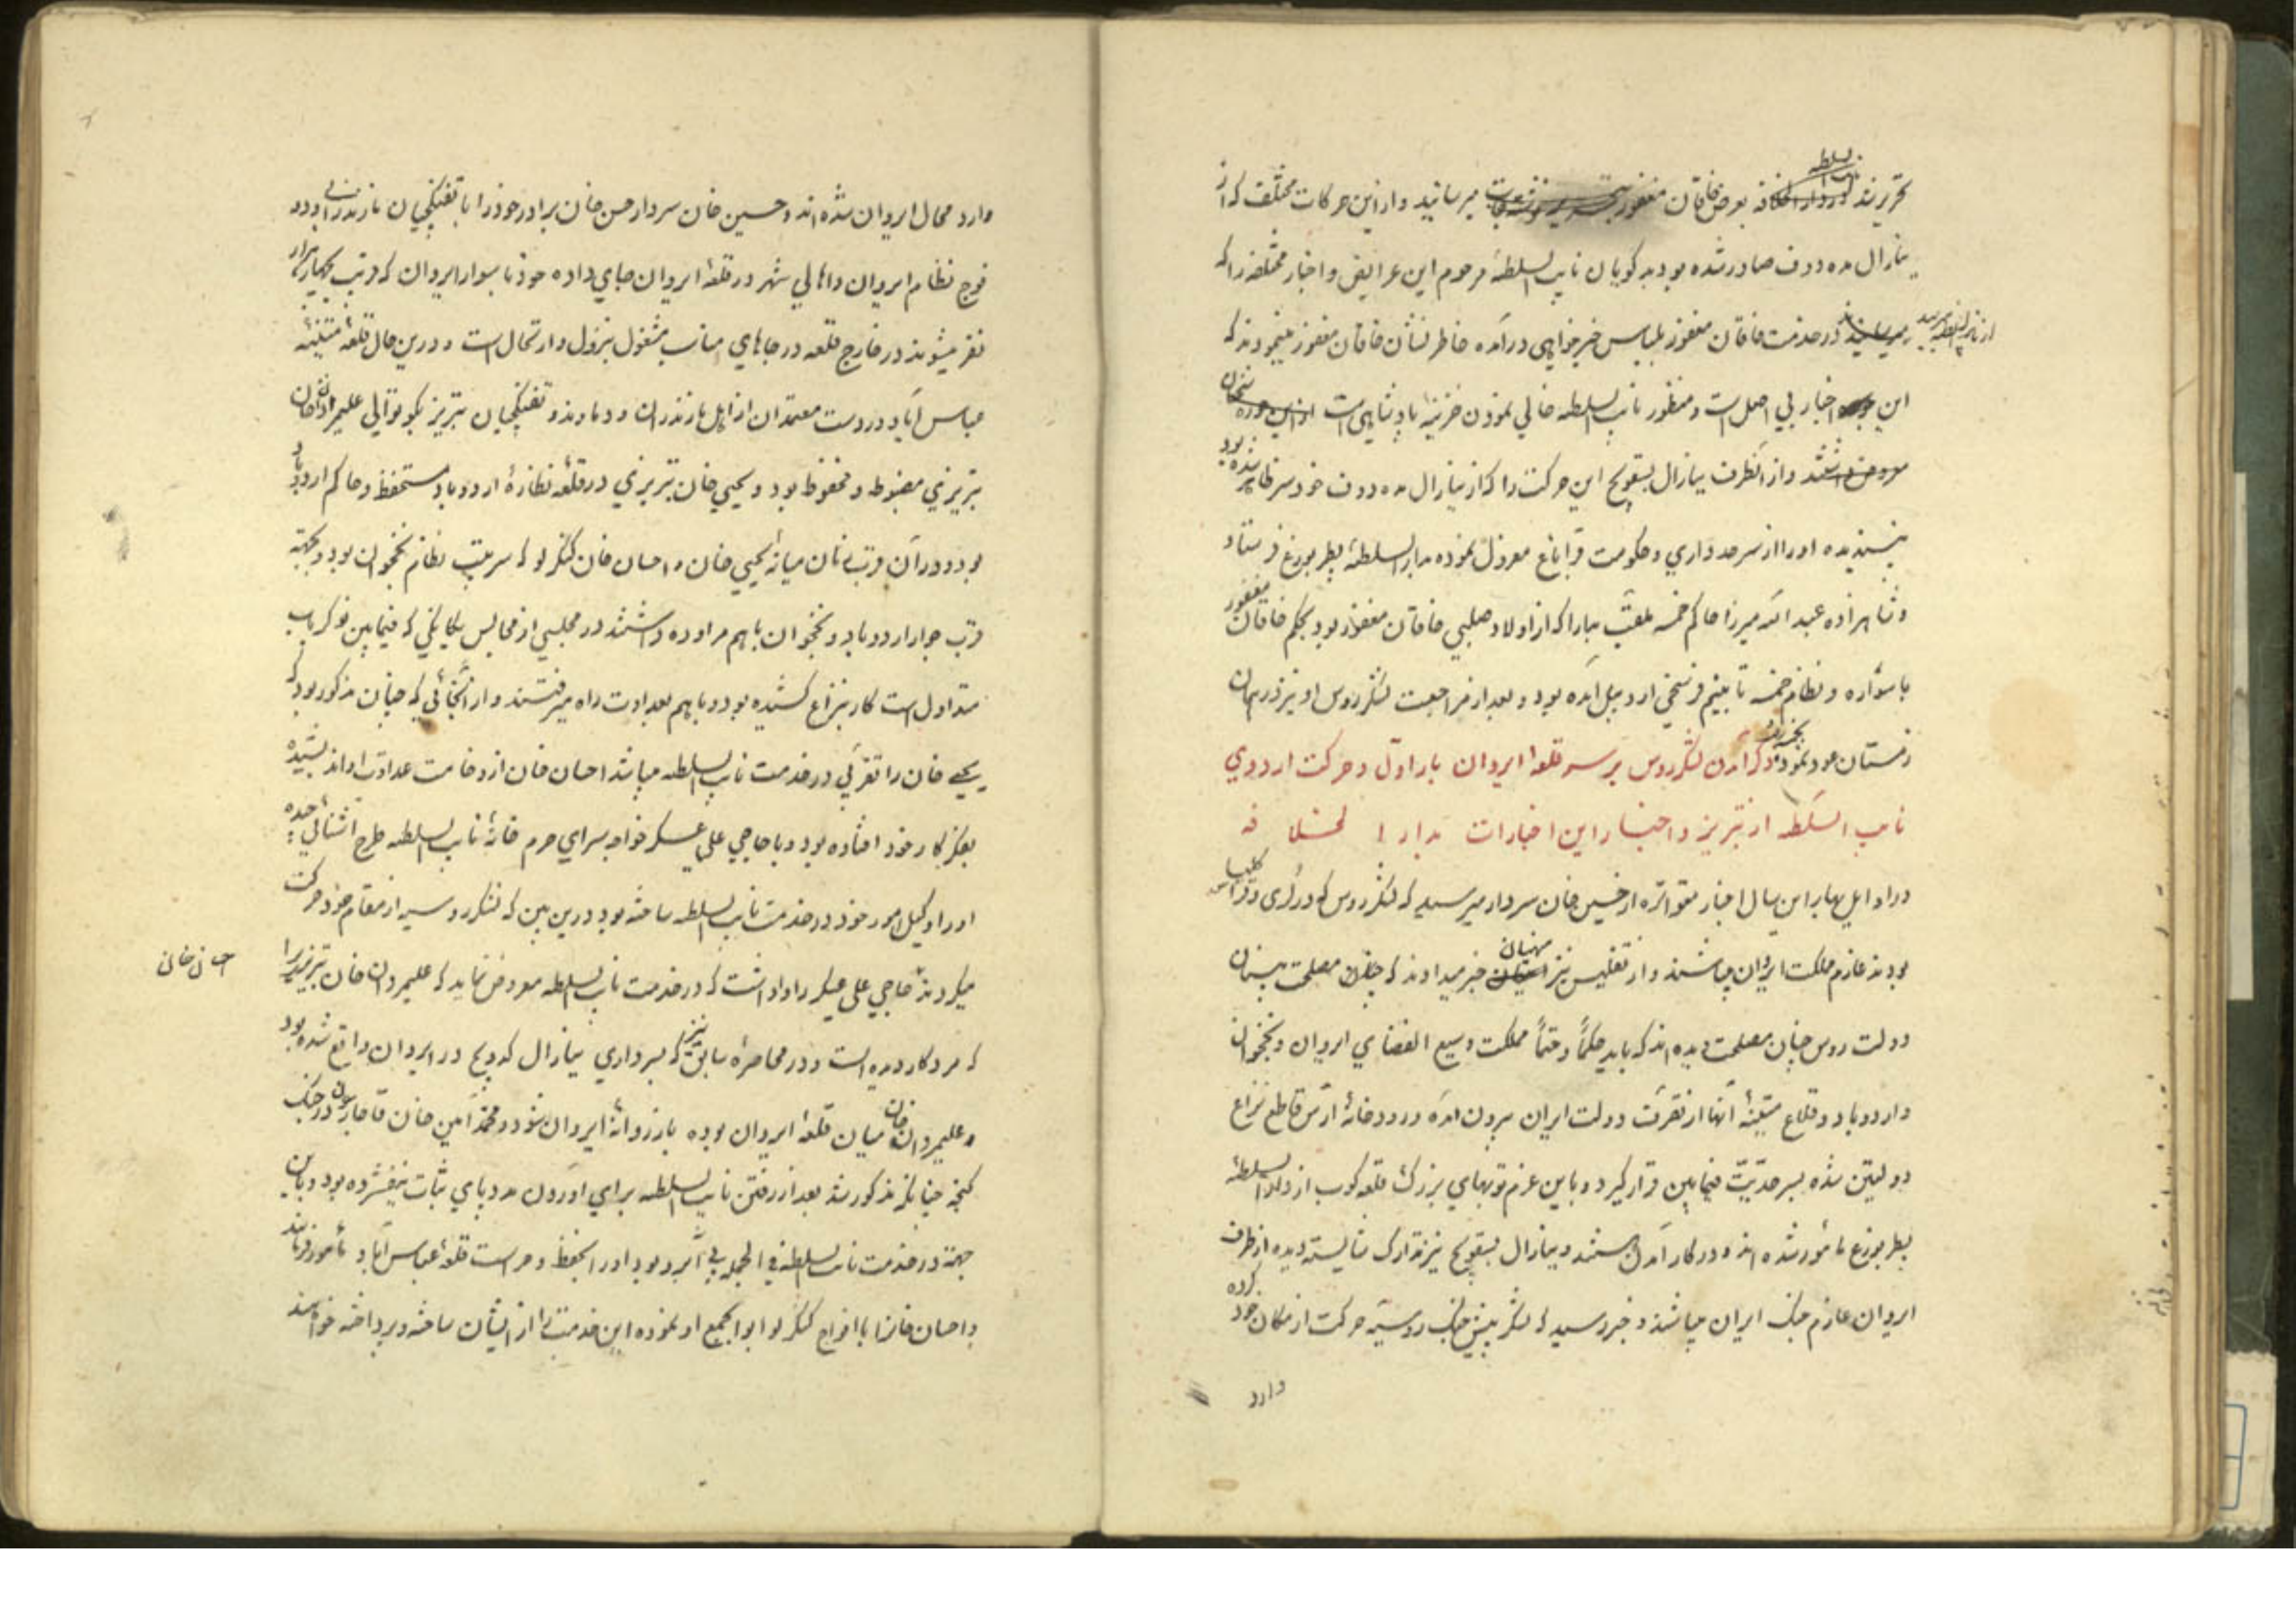 تحریر شد بعرض خاقان مغفور میرسانید و از این حرکات مختلف که از
ینارال مددوف صادر شده بود بدگویان نایب السلطنه مرحوم این عرایض و اخبار مختلفه را که
از نایب السلطنه میرسید در خدمت خاقان مغفور بلباس خیرخواهی درآمده خاطر نشان خاقان مغفور مینمودند که
این اخبار بی اصل است و منظور نایب السلطنه خالی نمودن خزینه پادشاهی است
و از آنطرف ینارال بسقویچ این حرکت را که از ینارال مددوف خودسر ظاهر شده بود
نپسندیده او را از سرحدداری و حکومت قراباغ معزول نموده بدار السلطنه پطربورغ فرستاد
و شاهزاده عبدالله میرزا حاکم خمسه ملقب بدارا که از اولاد صلبی خاقان مغفور بود بحکم خاقان مغفور
با سواره و نظام خمسه تا بنیم فرسخی اردبیل آمده بود و بعد از مراجعت لشکر روس او نیز در همان
زمستان عود نمود ذکر آمدن لشکر روس بر سر قلعه ایروان بار اول و حرکت اردوی
نایب السلطنه از تبریز و اخبار این اخبارات بدار الخلافه
در اوایل بهار این سال اخبار متواتره از حسین خان سردار میرسید که لشکر روس که در لری و قراکلیسا
بودند عازم مملکت ایروان میباشند و از تفلیس نیز منهیان خبر میدادند که مصلحت بینان
دولت روس چنان مصلحت دیده اند که باید حکماً و حتماً مملکت وسیع الفضای ایروان و نخجوان
و اردوباد و قلاع متینه آنها از تصرف دولت ایران بیرون آمده و رودخانه ارس قاطع نزاع
دولتین شده بسرحدیت فیمابین قرار گیرد و باین عزم توپهای بزرگ قلعه کوب از دار السلطنه
پطربورغ مأمور شده اند و در کار آمدن هستند و ینارال بسقویچ نیز تدارک شایسته دیده از طرف
ایروان عازم جنگ ایران میباشد و خبر رسید که لشکر پیش جنگ روسیه حرکت از مکان خود کرده
وارد
وارد محال ایروان شده اند و حسین خان سردار حسن خان برادر خود را با تفنگچیان مازندرانی و دو
فوج نظام ایروان و اهالی شهر در قلعه ایروان جای داده خود با سوار ایروان که قریب بچهار هزار
نفر میشوند در خارج قلعه در جاهای مناسب مشغول بنزول و ارتحال است و درین حال قلعه متینه
عباس آباد در دست معتمدان از اهل مازندران و دماوند و تفنگچیان تبریز بکوتوالی علیمردان خان
تبریزی مضبوط و محفوظ بود و یحیی خان تبریزی در قلعه نظاره اردوباد مستحفظ و حاکم اردوباد
بود و در آن میانه یحیی خان و احسان خان کنگرلو که سرتیپ نظام نخجوان بود و بجهته
قرب جوار اردوباد و نخجوان باهم مراوده داشتند در مجلسی از مجالس که فیمابین نوکر باب
متداول است کار بنزاع کشیده بود و باهم بعداوت راه میرفتند و از آنجائی که چنان مذکور بود که
یحیی خان را تقربی در خدمت نایب السلطنه میباشد احسان خان از وخامت عداوت او اندیشیده
بفکر کار خود افتاده بود و با حاجی علی عسکر خواجه سرای حرم خانه نایب السلطنه طرح آشنائی
او را وکیل امور خود در خدمت نایب السلطنه ساخته بود درین بین که لشکر روسیه از مقام خود حرکت
میکردند حاجی علی عسکر را واداشت که در خدمت نایب السلطنه معروض نماید که علیمردان خان تبریزی را
احسان خان
که مرد کار دیده است و در محاصره سابق نیز که بسرداری ینارال کدویچ در ایروان واقع شده بود
علیمردان خان میان قلعه ایروان بوده باز روانه ایروان شود و محمد امین خان قاجار در جنگ
گنجه چنانکه مذکور شد بعد از رفتن نایب السلطنه برای آوردن مدد پای ثبات نیفشرده بود و باین
جهة در خدمت نایب السلطنه فی الجمله بی آبرو بود او را بحفظ و حراست قلعه عباس آباد مأمور فرمایند
و احسان خانرا با افواج کنگرلو ابوابجمع او نموده این خدمت را از ایشان ساخته و پرداخته خواهند